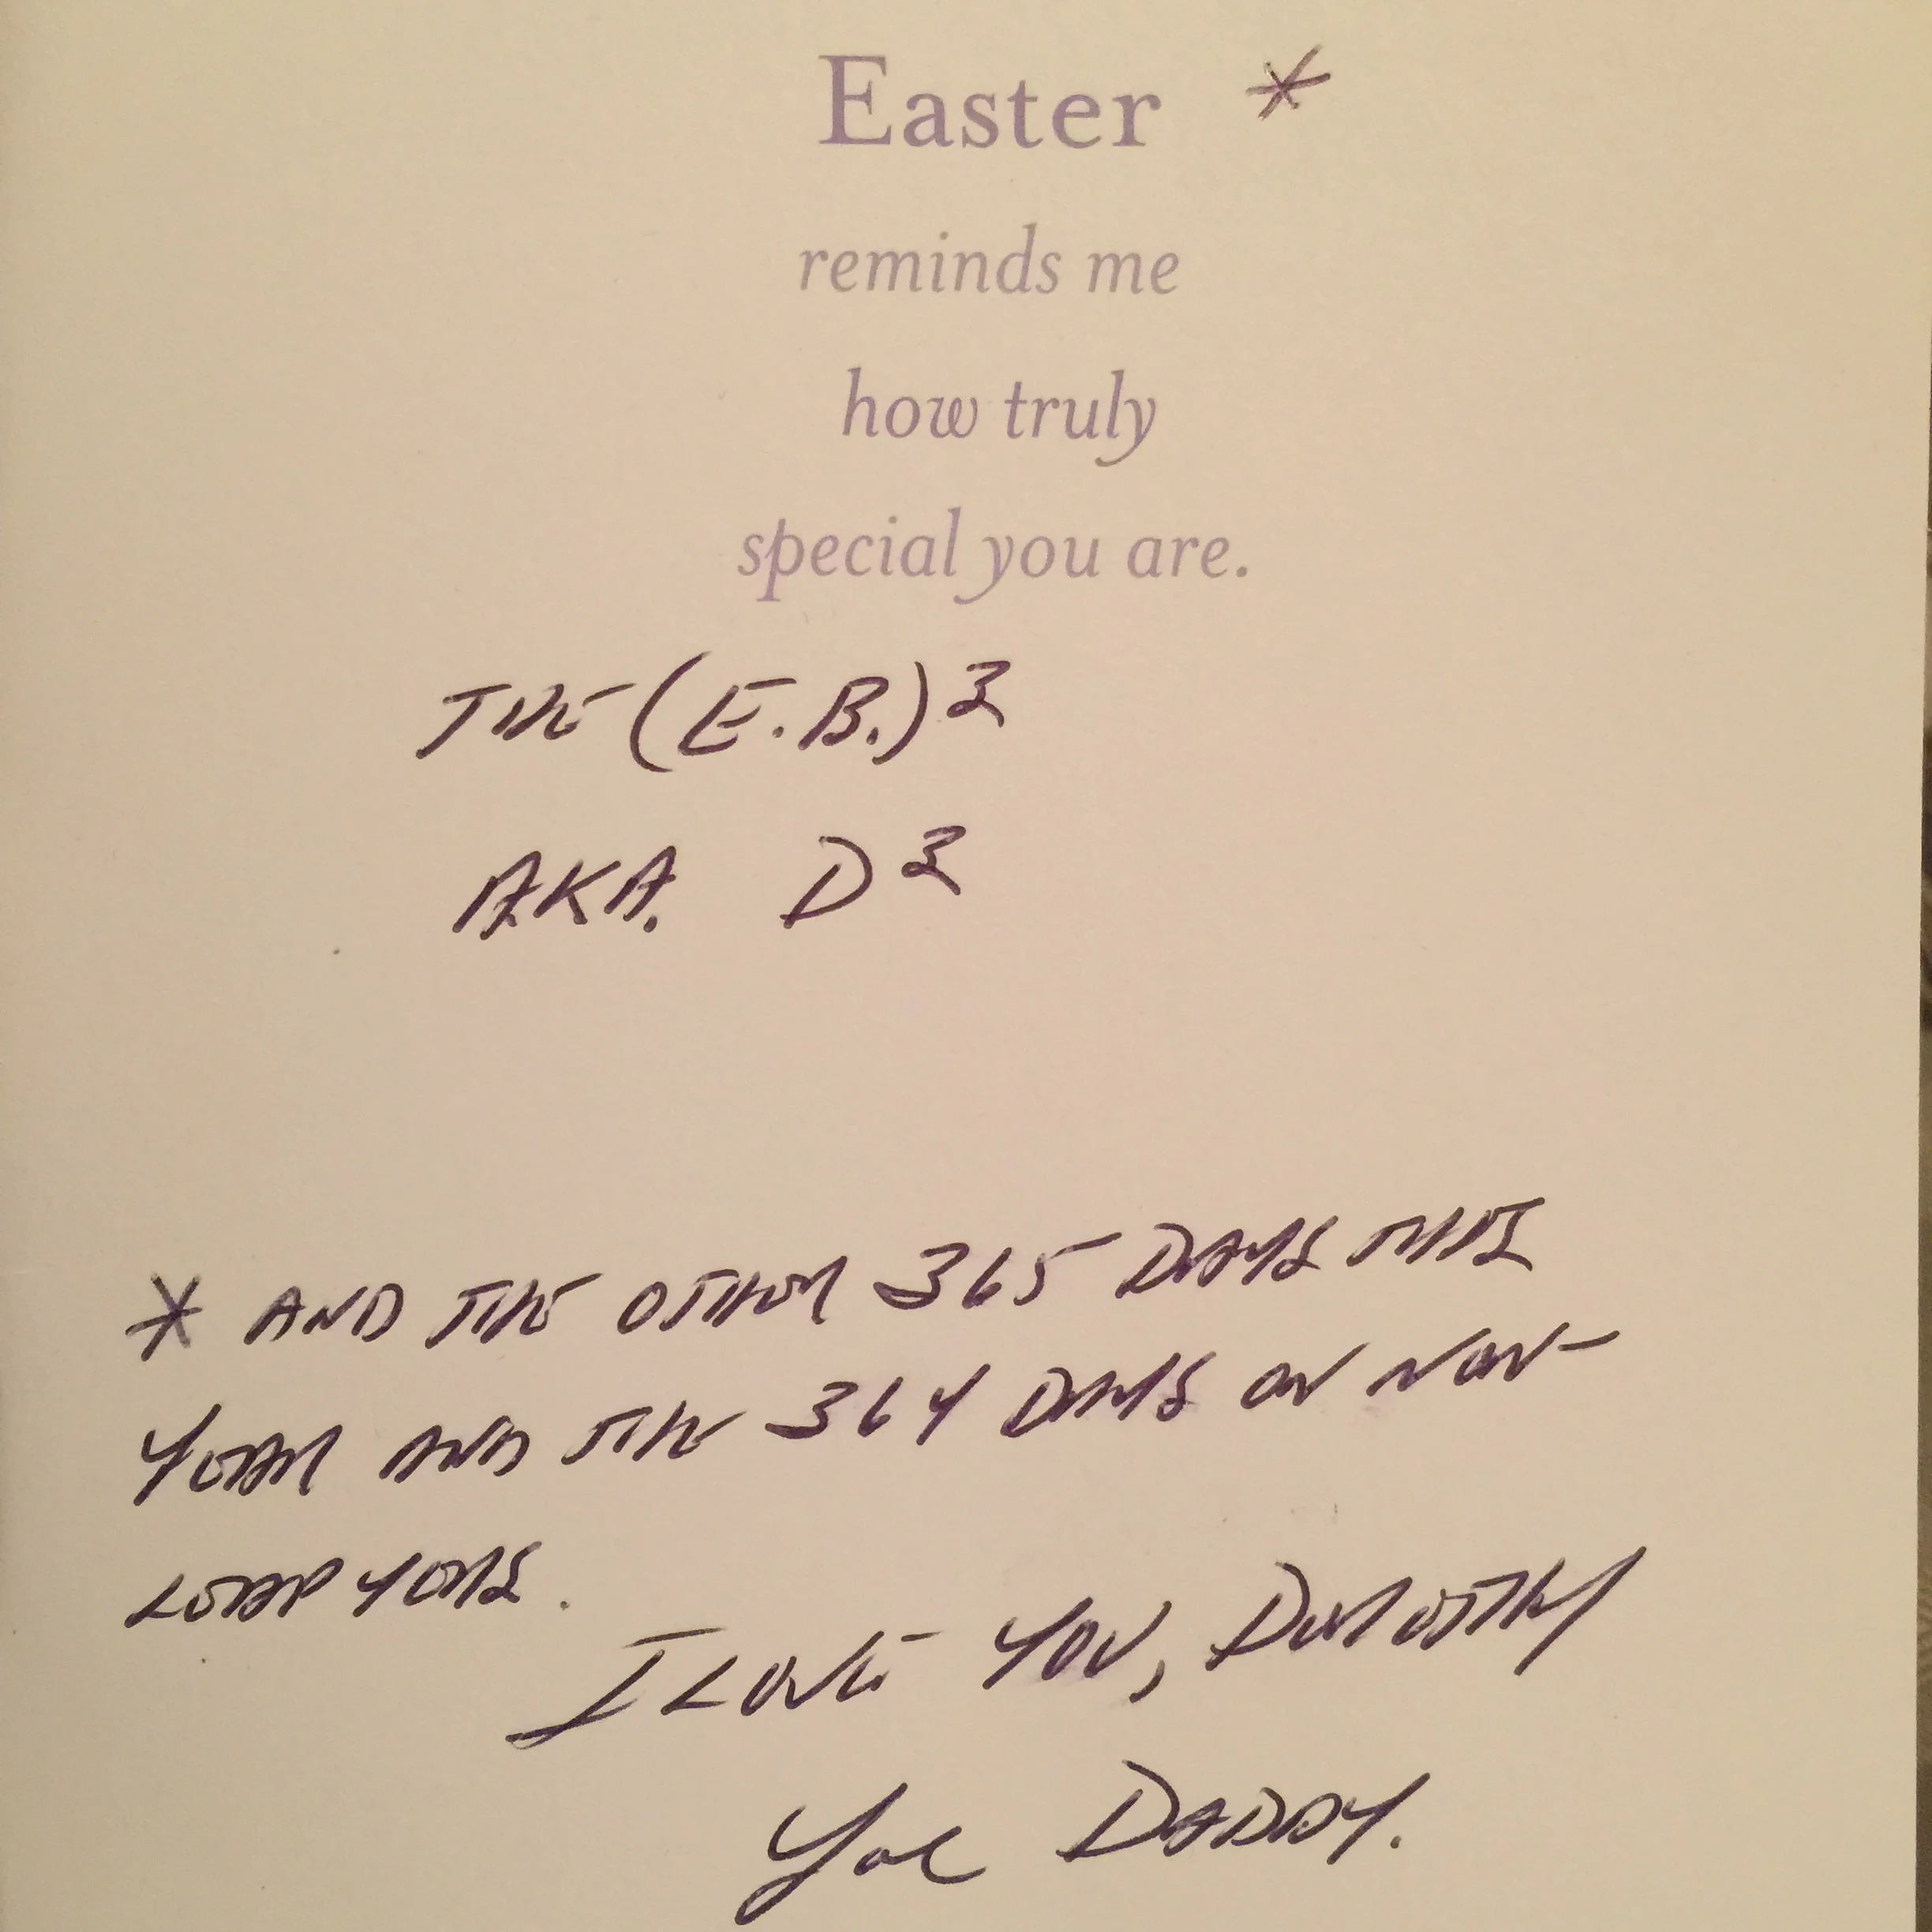 Easter *
reminds me
how truly
special you are.
THE (E.B.)²
AKA. D²
* AND THE OTHER 365 DAYS THIS
YEAR AND THE 364 DAYS ON NON-
LEAP YEARS.
I LOVE YOU, DOROTHY
Your DADDY.